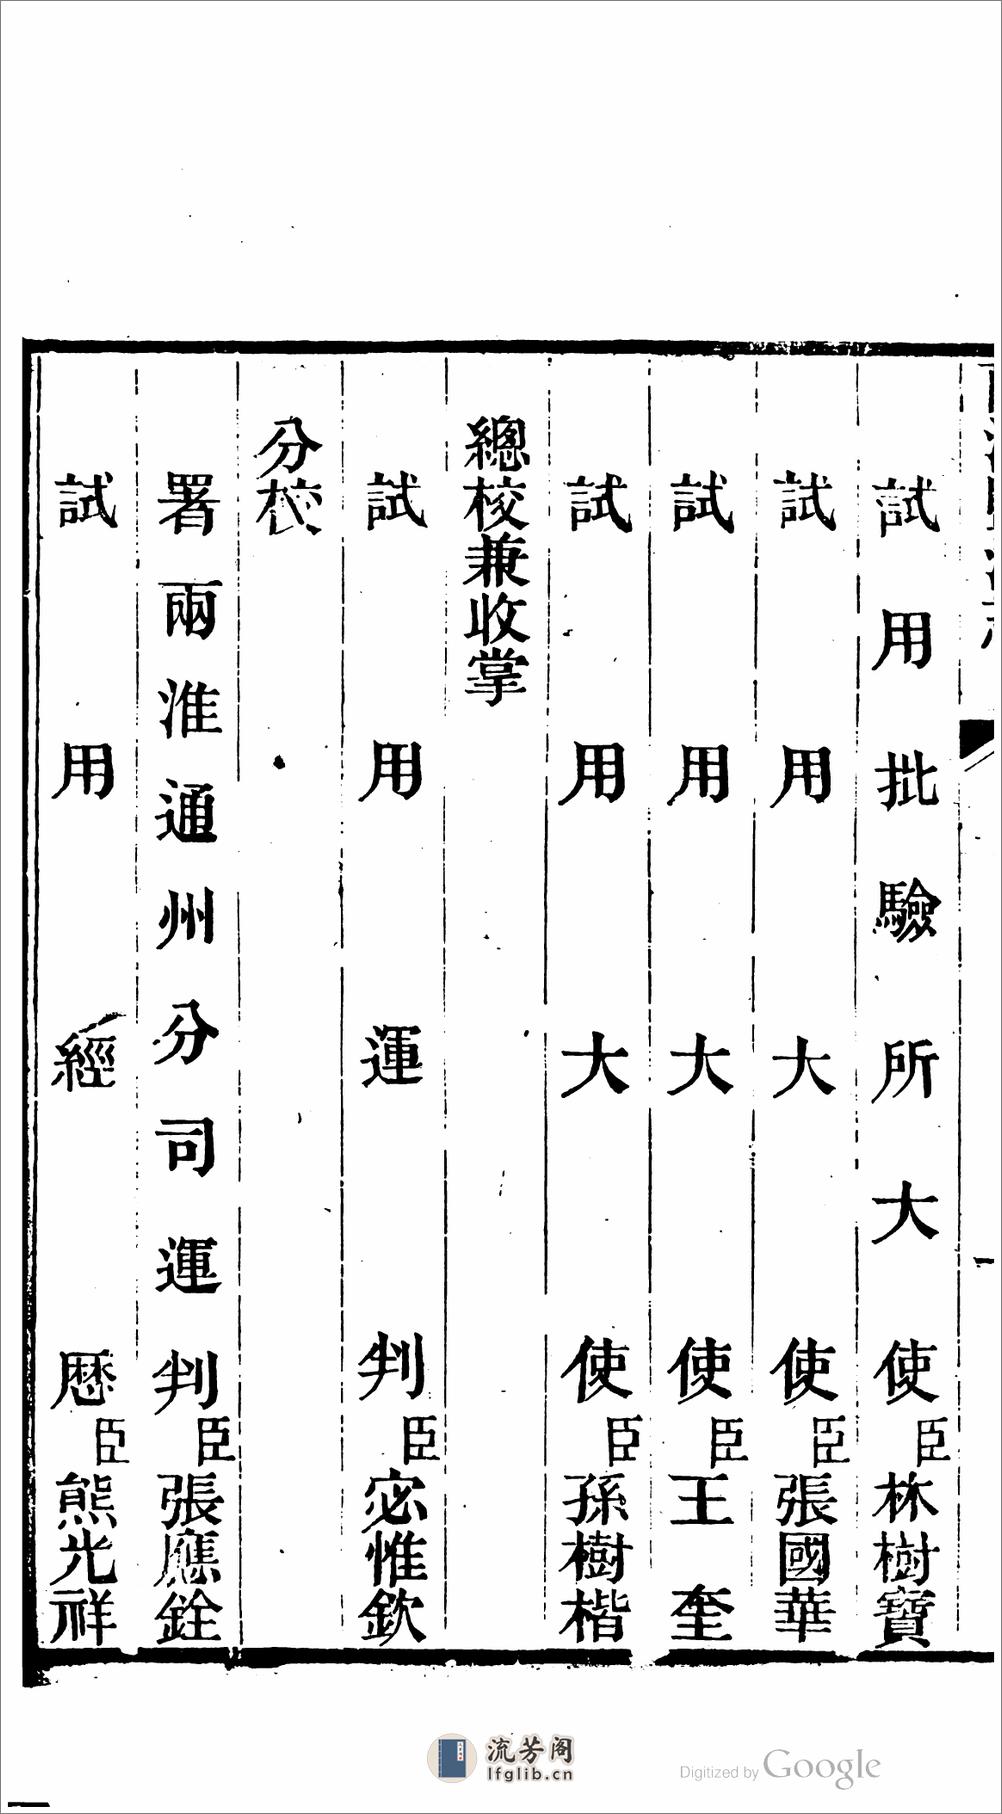 試用批驗所大使臣林樹寶
試用大使臣張國華
試用大使臣王奎
試用大使臣孫樹楷
總校兼收掌
試用運判臣宓惟欽
分校
署兩淮通州分司運判臣張應銓
試用經歷臣熊光祥
流芳阁
lfglib.cn
Digitized by Google